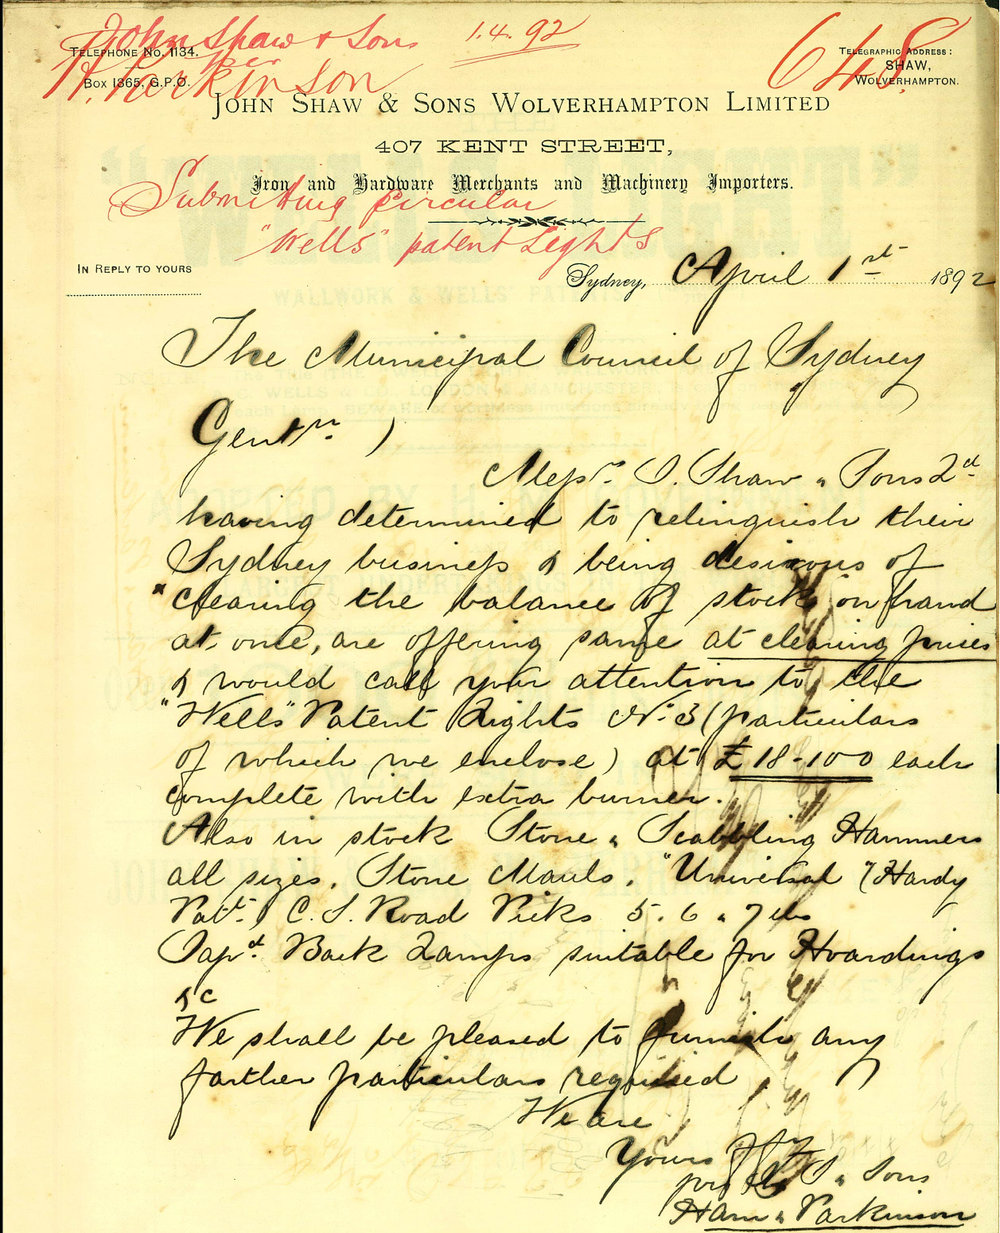 John Shaw & Sons 1.4.92 648.
per
H. Parkinson
TELEPHONE NO. 1134.
BOX 1365, G.P.O.
TELEGRAPHIC ADDRESS:
SHAW,
WOLVERHAMPTON.
JOHN SHAW & SONS WOLVERHAMPTON LIMITED
407 KENT STREET,
Iron and Hardware Merchants and Machinery Importers.
Submitting circular
"Wells" patent Lights
IN REPLY TO YOURS
Sydney, April 1st 1892
The Municipal Council of Sydney
Gentmn )
Messrs J. Shaw & Sons Ld
having determined to relinquish their
Sydney business & being desirous of
clearing the balance of stock on hand
at once, are offering same at clearing prices
& would call your attention to the
"Wells" Patent Lights No. 3 (particulars
of which we enclose) at £18-10-0 each
complete with extra burner.
Also in stock Stone & Scabbling Hammers
all sizes. Stone Mauls. "Universal (Hardy
Patt.) C.S. Road Picks 5. 6 & 7 lbs
Japd. Back Lamps suitable for Hoardings
&c
We shall be pleased to furnish any
farther particulars required
We are
Yours
J. S. & Sons
Parkinson